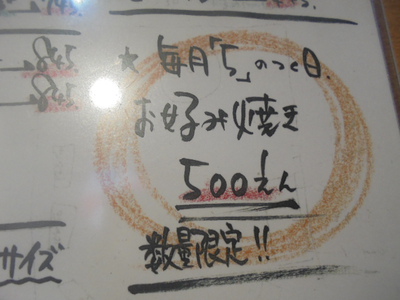 ★ 毎月「5」のつく日.
お好み焼き
500えん
数量限定!!
サイズ